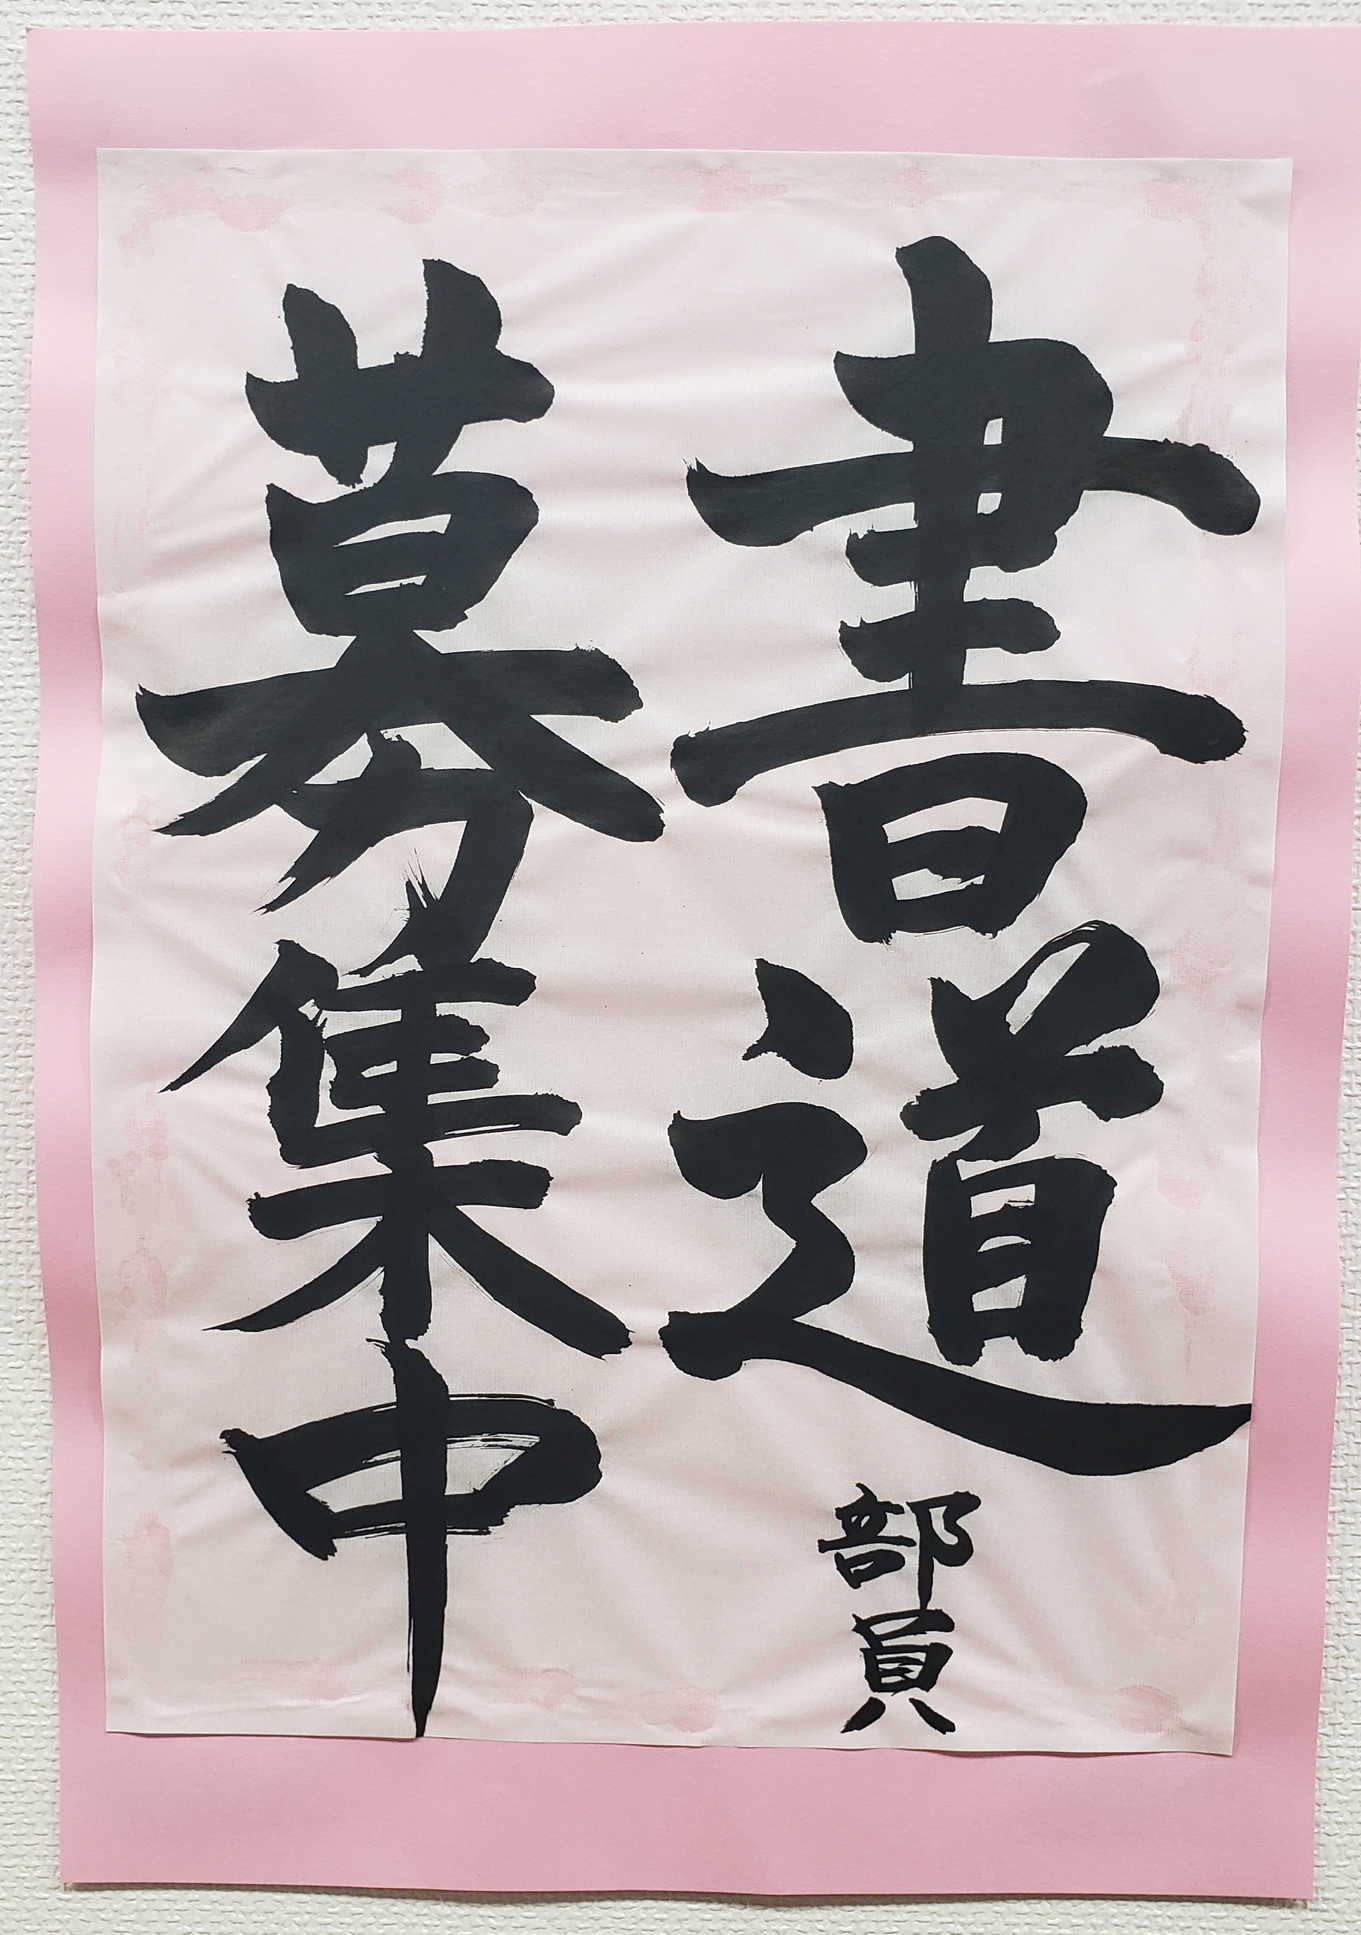 書道部員
募集中